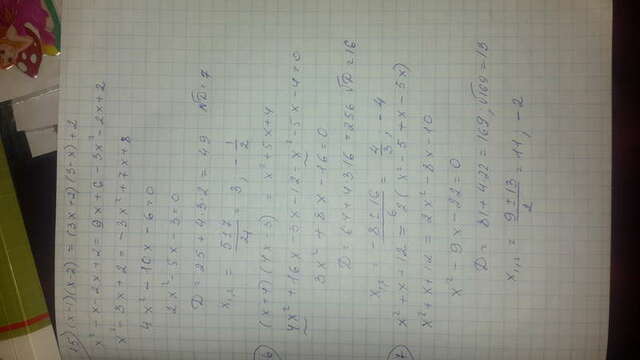 5) (x-1)(x-2) = (3x+2)(3-x)+2
x²-x-2x+2 = 9x+6-3x²-2x+2
x²-3x+2 = -3x²+7x+8
4x²-10x-6=0
2x²-5x-3=0
D = 25+4·3·2 = 49 √D=7
x₁,₂ = 5±7/4 = 3, -1/2
6 (x+4)(4x-3) = x²+5x+4
4x²+16x-3x-12-x²-5x-4=0
3x²+8x-16=0
D = 64+4·3·16=256 √D=16
x₁,₂ = -8±16/6 = 4/3, -4
7 x²+x+12 = 2(x²-5+x-5x)
x²+x+12 = 2x²-8x-10
x²-9x-22=0
D = 81+4·22=169; √169=13
x₁,₂ = 9±13/2 = 11, -2